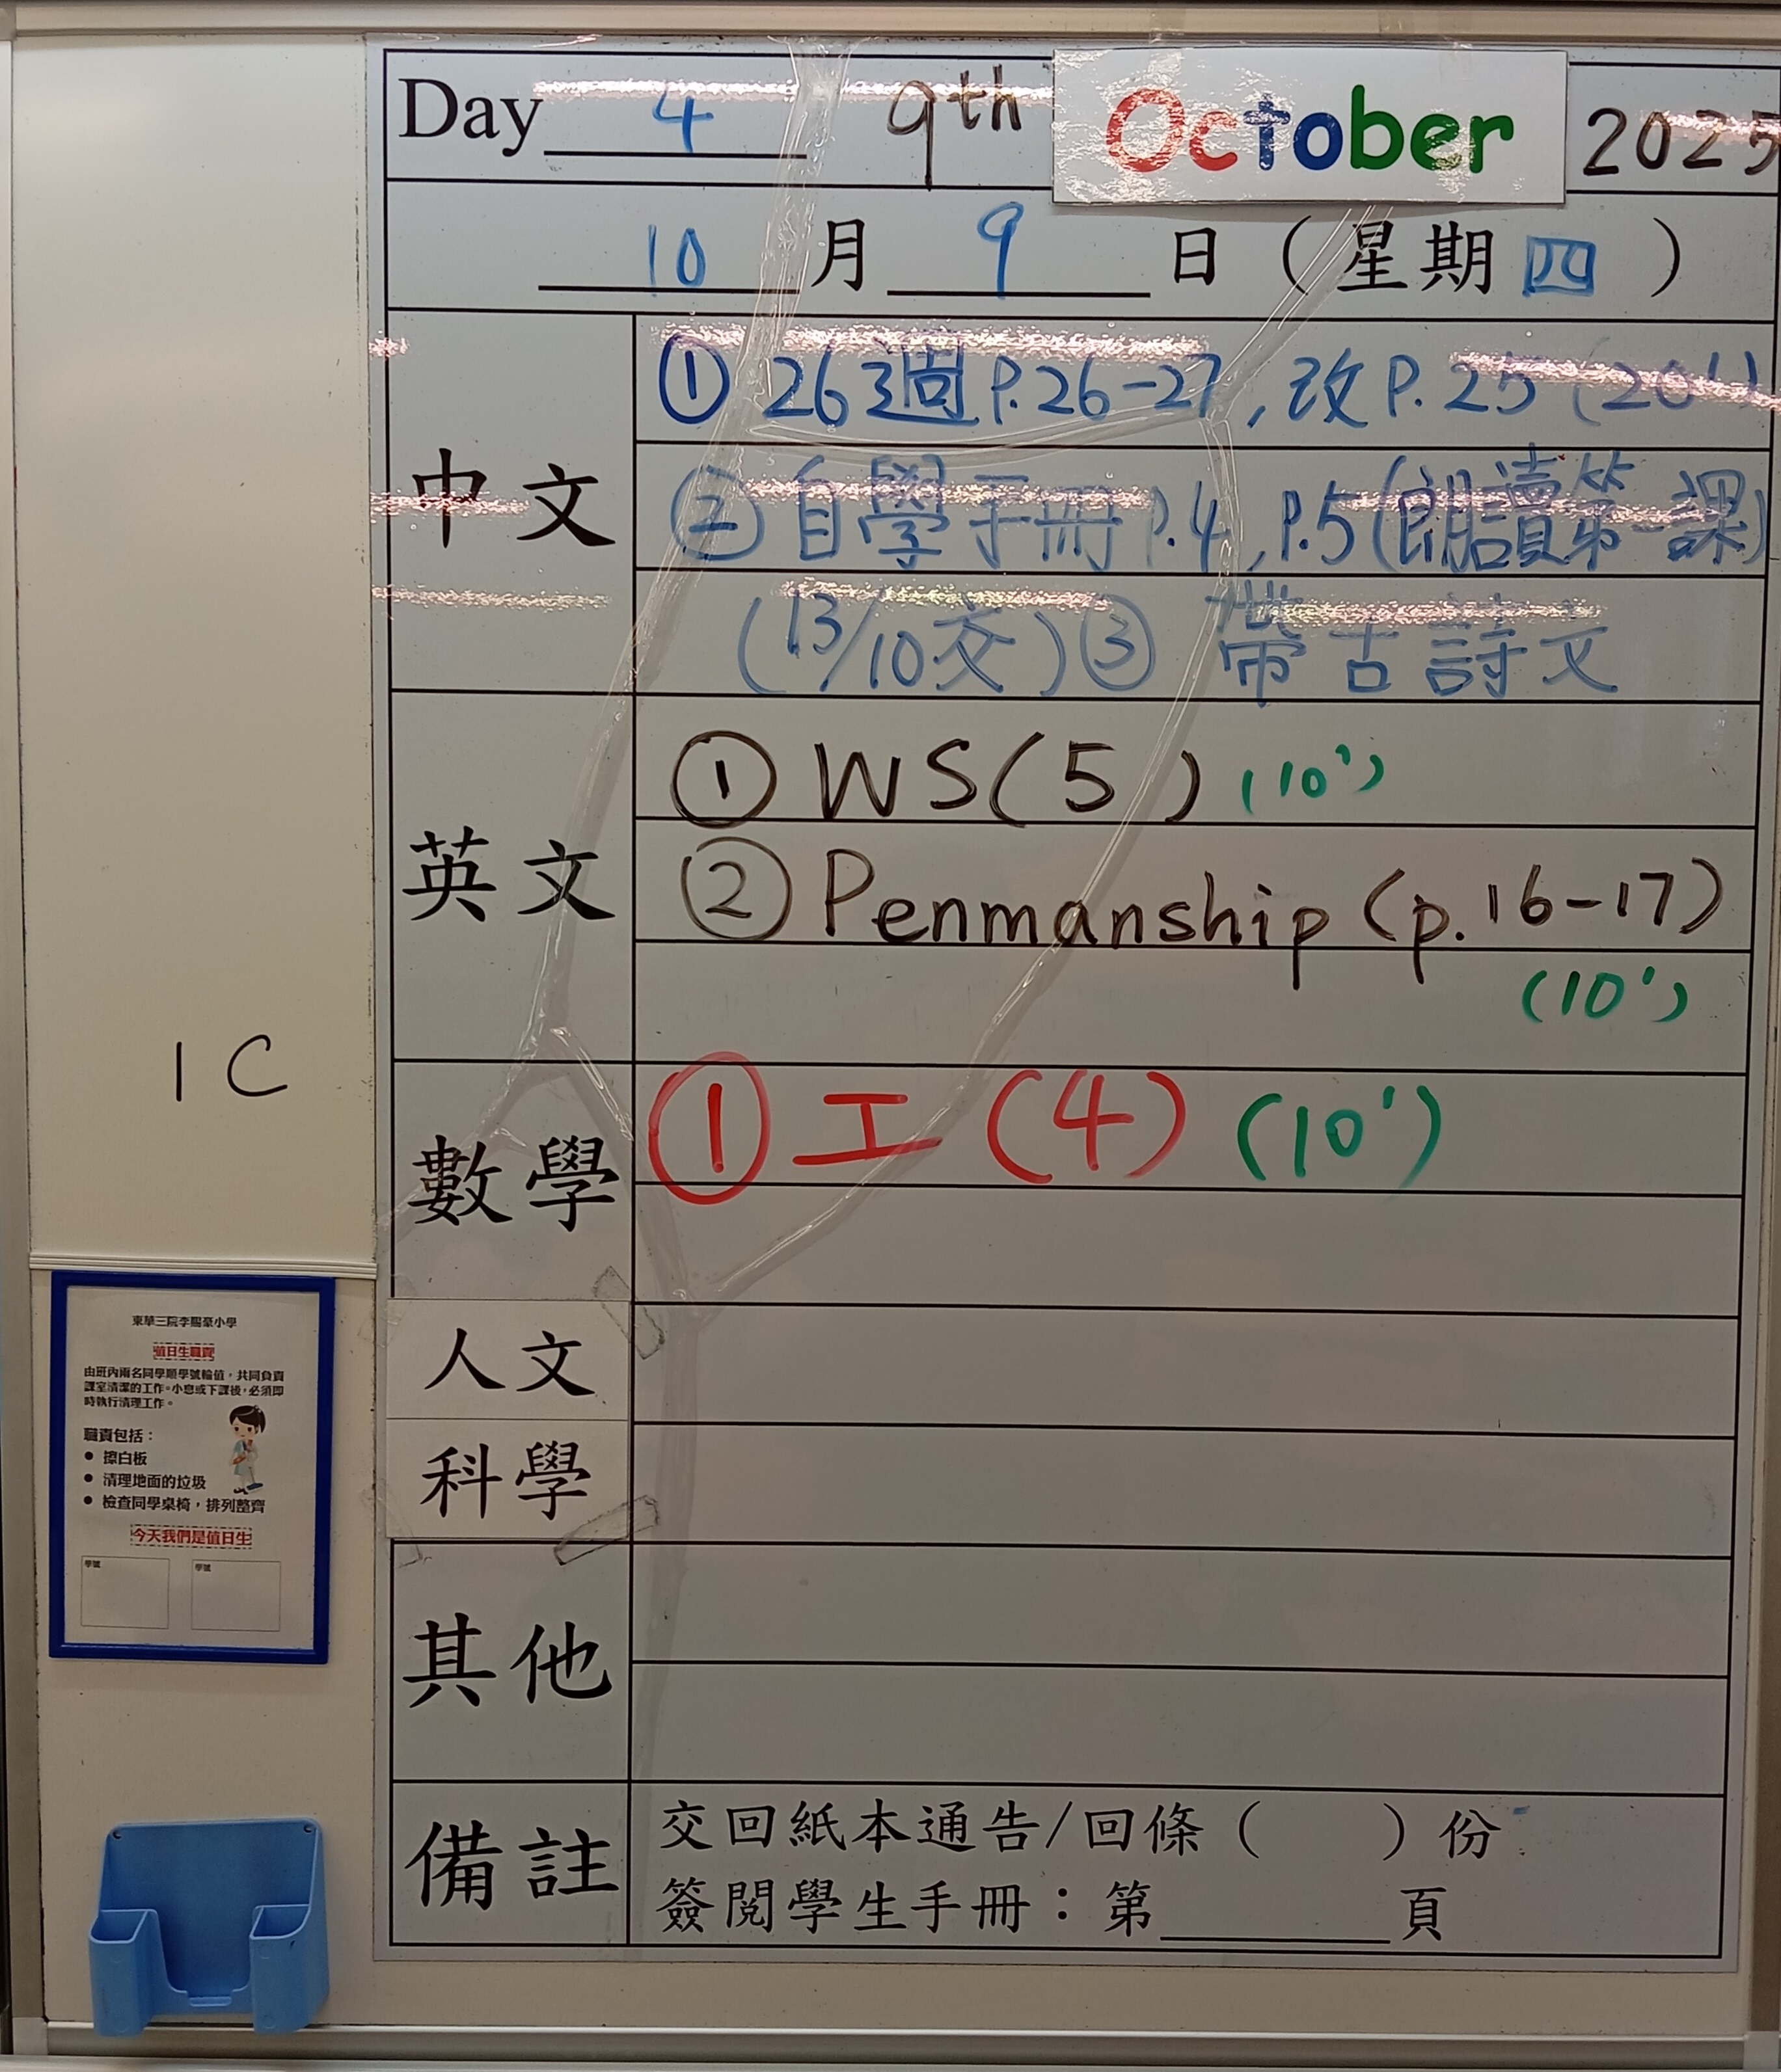 Day 4 9th October 2025
10 月 9 日 ( 星期 四 )
中文
① 26週 P.26-27, 改P.25 (20')
② 自學手冊 P.4, P.5 (朗讀第一課)
(13/10交) ③ 帶古詩文
英文
① WS(5) (10')
② Penmanship (p.16-17)
(10')
數學
① 工(4) (10')
人文
科學
其他
備註
交回紙本通告/回條 ( ) 份
簽閱學生手冊：第______頁
1C
東華三院李賜豪小學
值日生職責
由班內兩名同學順學號輪值，共同負責
課室清潔的工作。小息或下課後，必須即
時執行清理工作。
職責包括：
● 擦白板
● 清理地面的垃圾
● 檢查同學桌椅，排列整齊
今天我們是值日生
學號 學號